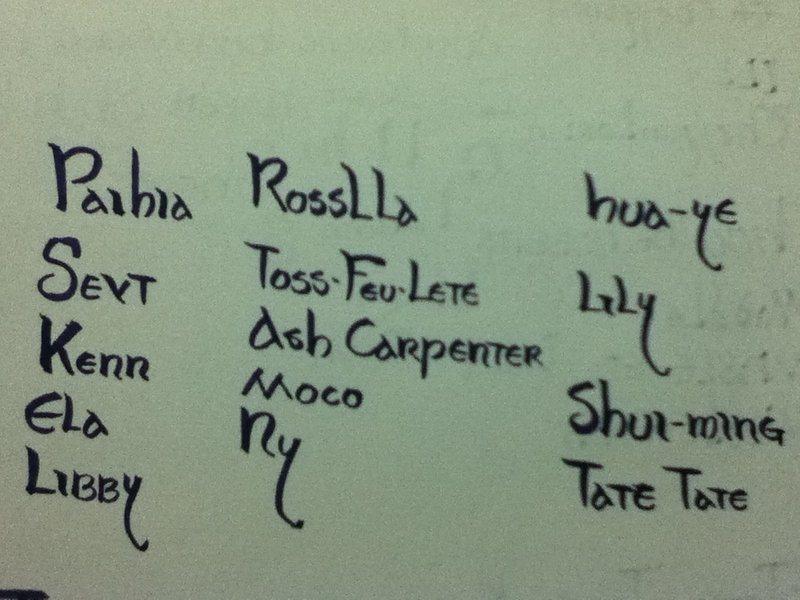 Paihia
Sevt
Kenn
Ela
Libby
RossLLa
Toss-Feu-Lete
Ash Carpenter
Moco
Ny
hua-ye
Lily
Shui-ming
Tate Tate